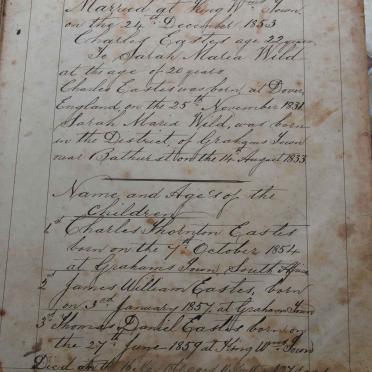 Married at King Wms Town
on the 24th December 1853
Charles Eastes age 22 years
To Sarah Maria Wild
at the age of 20 years.
Charles Eastes was born at Dover,
England, on the 25th November 1831.
Sarah Maria Wild, was born
in the District, of Grahams Town
near Bathurst on the 14th August 1833
Name and Ages of the
Children
1st Charles Thornton Eastes
born on the 7th October 1854
at Grahams Town, South Africa
2nd James William Eastes, born
on 3rd January 1857, at Graham Town
3rd Thomas Daniel Eastes born on
the 27th June 1859 at King Wms Town
Died on the